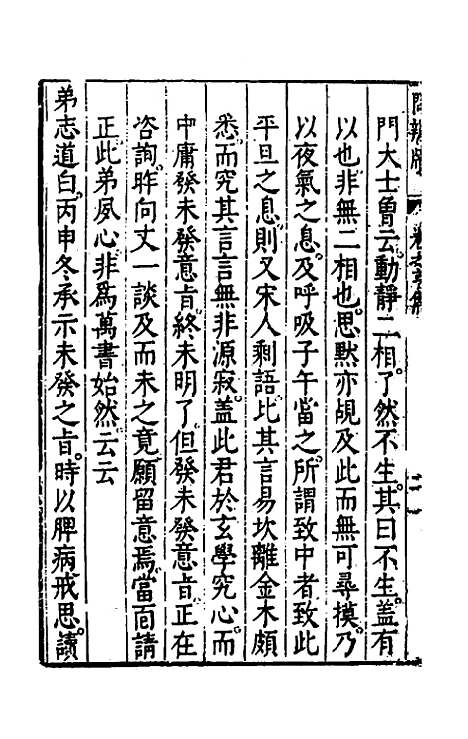 門大士曾云動靜二相了然不生其曰不生蓋有
以也非無二相也思默亦覘及此而無可尋摸乃
以夜氣之息及呼吸子午當之所謂致中者致此
平旦之息則又宋人剩語比其言易坎離金木頗
悉而究其言言無非源寂蓋此君於玄學究心而
中庸發未發意旨終未明了但發未發意旨正在
咨詢昨向丈一談及而未之竟願留意焉當面請
正此弟夙心非爲萬書始然云云
弟志道白丙申冬承示未發之旨時以脾病戒思讀